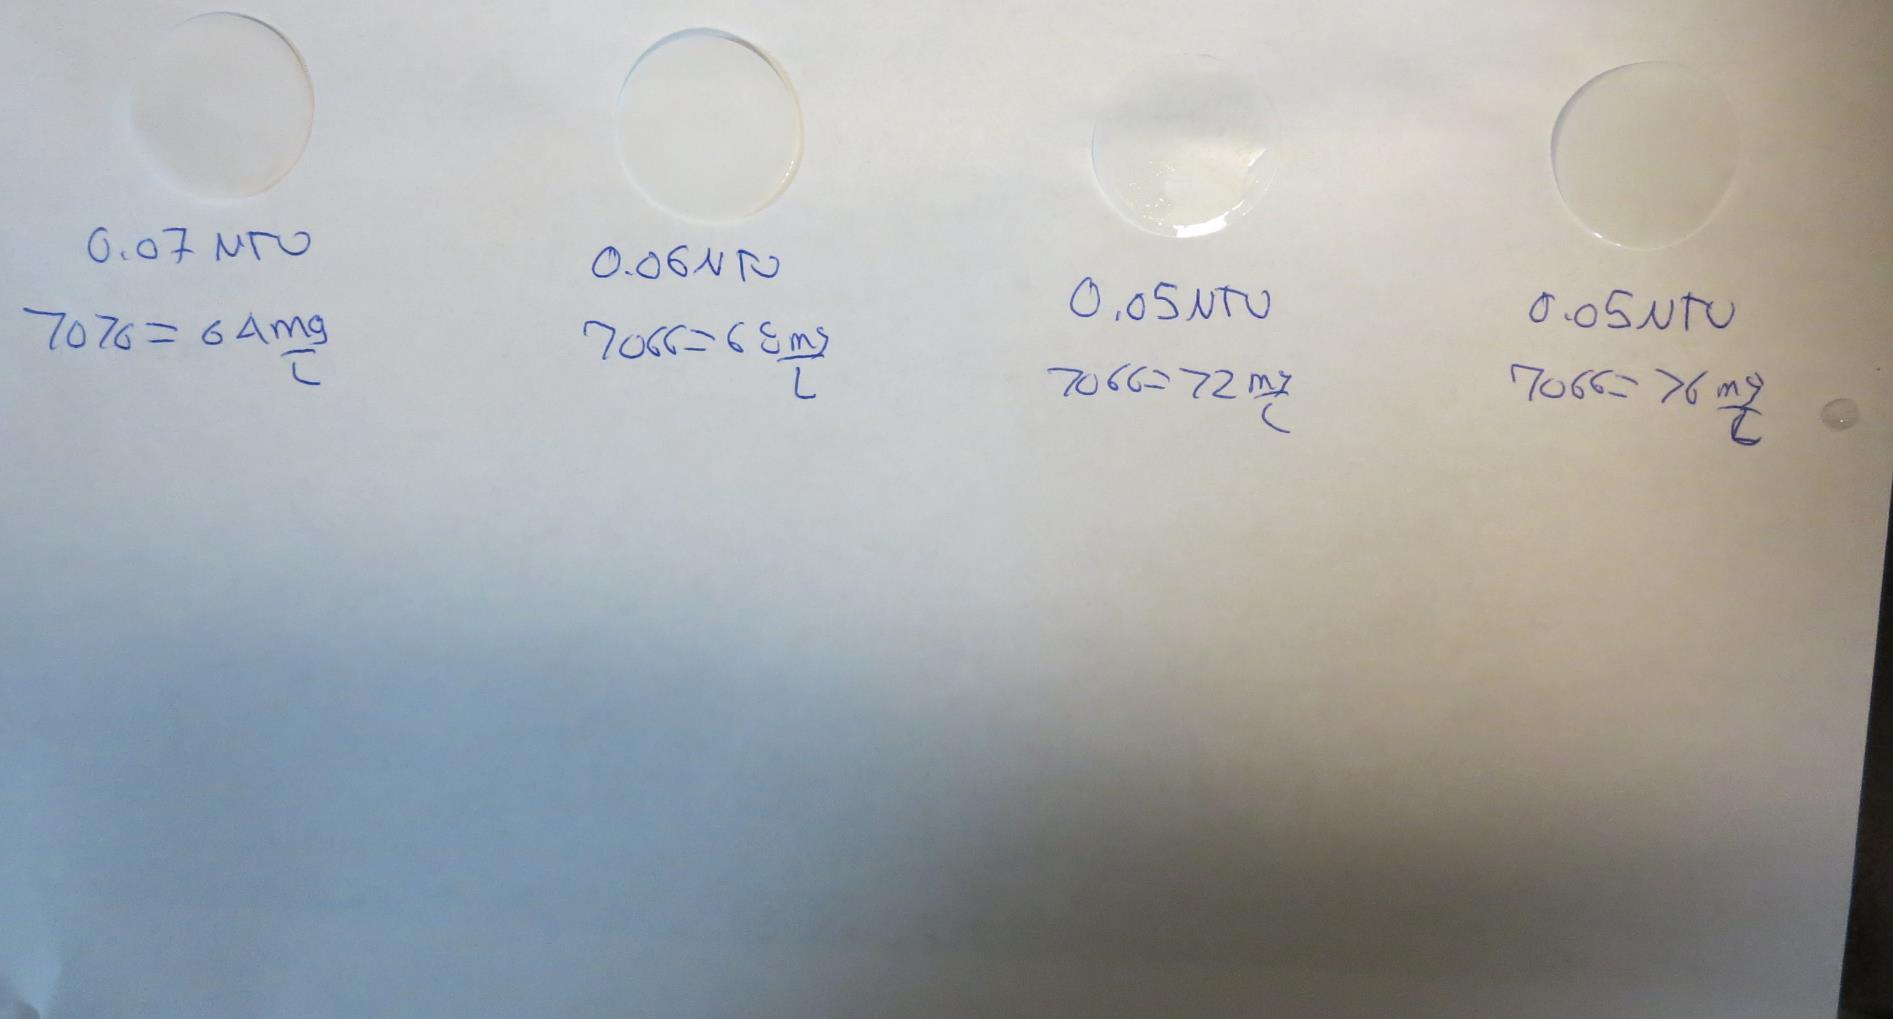 0.07 NTU
7076 = 64 mg/L
0.06 NTU
7066 = 68 mg/L
0.05 NTU
7066 = 72 mg/L
0.05 NTU
7066 = 76 mg/L